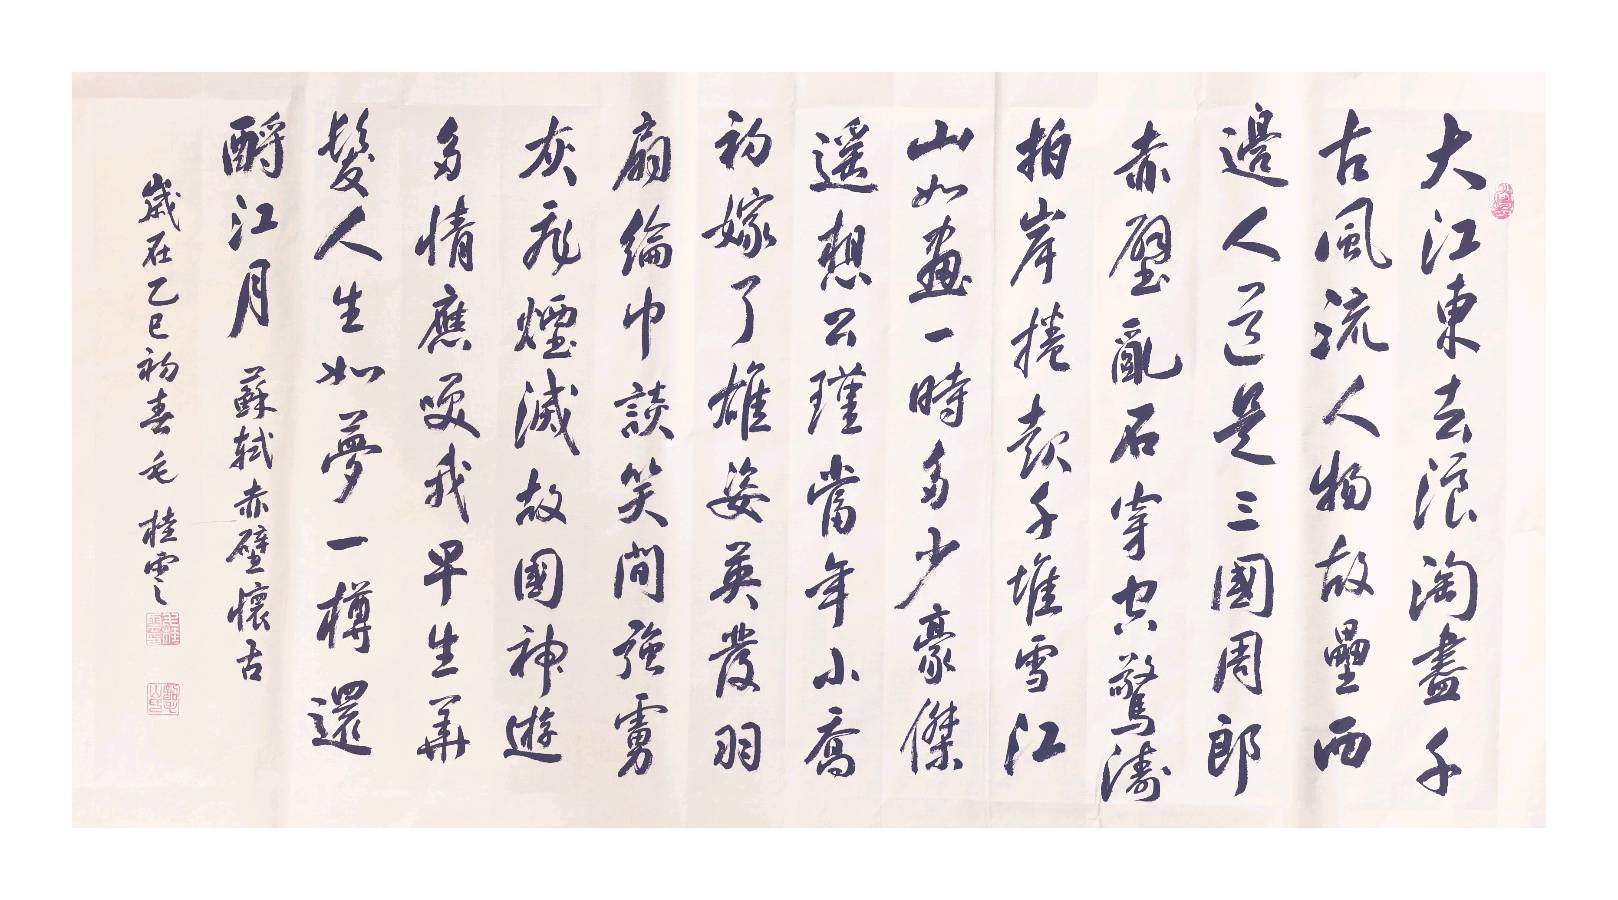 大江東去浪淘盡千
古風流人物故壘西
邊人道是三國周郎
赤壁亂石穿空驚濤
拍岸捲起千堆雪江
山如畫一時多少豪傑
遙想公瑾當年小喬
初嫁了雄姿英發羽
扇綸巾談笑間強虜
灰飛煙滅故國神遊
多情應笑我早生華
髮人生如夢一樽還
酹江月 蘇軾赤壁懷古
歲在乙巳初春毛桂雲